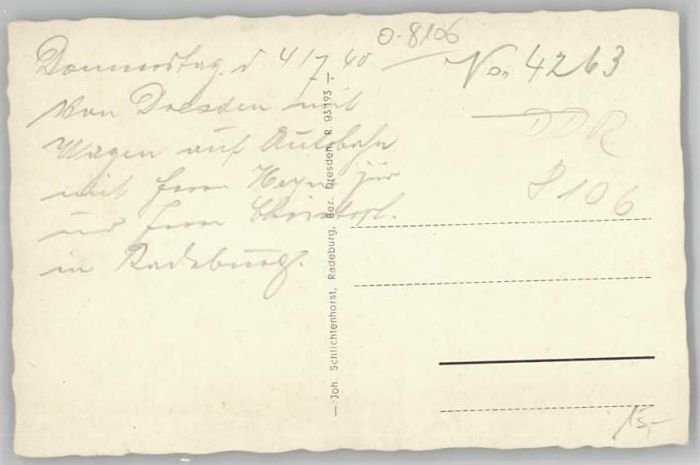 O-8106
Donnerstag. d 4/7 40
No. 4263
Von Dresden mit
Wagen auf Autobahn
mit Herrn
und Herrn Christoph.
in Radeburg.
DDR
8106
— Joh. Schlichtenhorst, Radeburg, Bez. Dresden, R. 93193 —
15,-